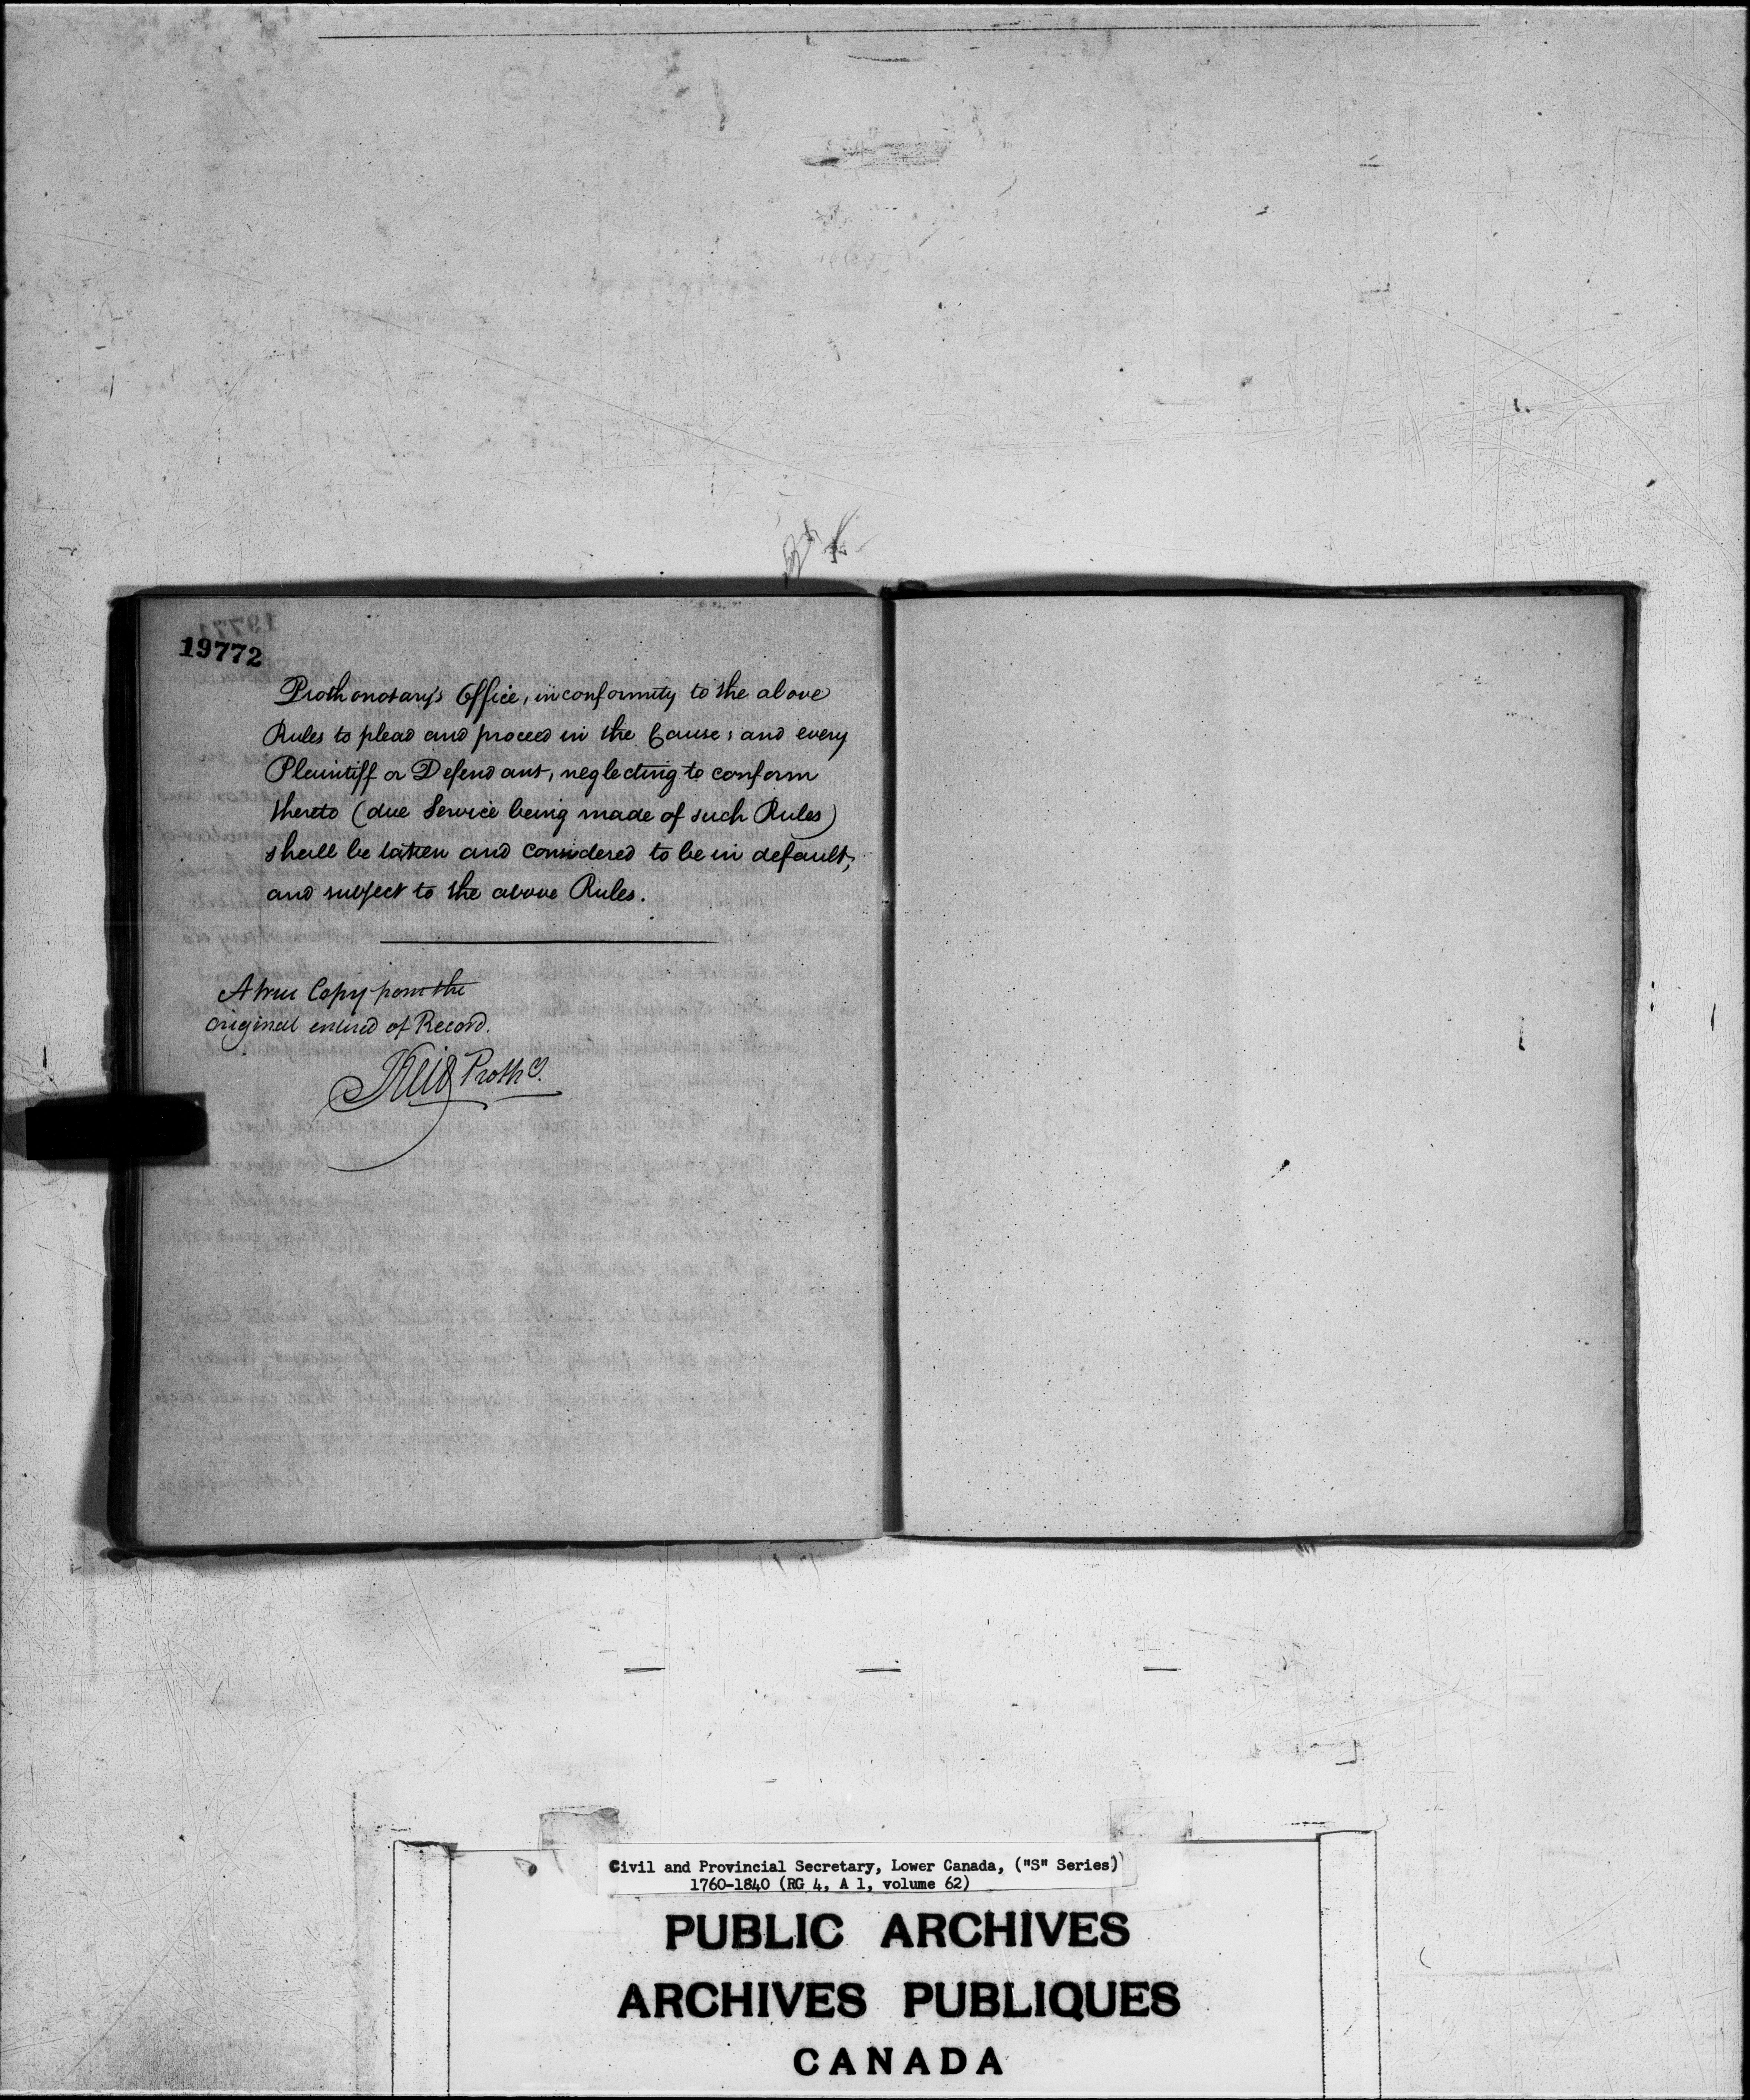 19772
Prothonotary's Office, in conformity to the above
Rules to plead and proceed in the Cause; and every
Plaintiff or Defendant, neglecting to conform
thereto (due Service being made of such Rules)
shall be taken and considered to be in default,
and subject to the above Rules.
A true Copy from the
original entered of Record.
JReid Prothy.
Civil and Provincial Secretary, Lower Canada, ("S" Series)
1760-1840 (RG 4, A 1, volume 62)
PUBLIC ARCHIVES
ARCHIVES PUBLIQUES
CANADA